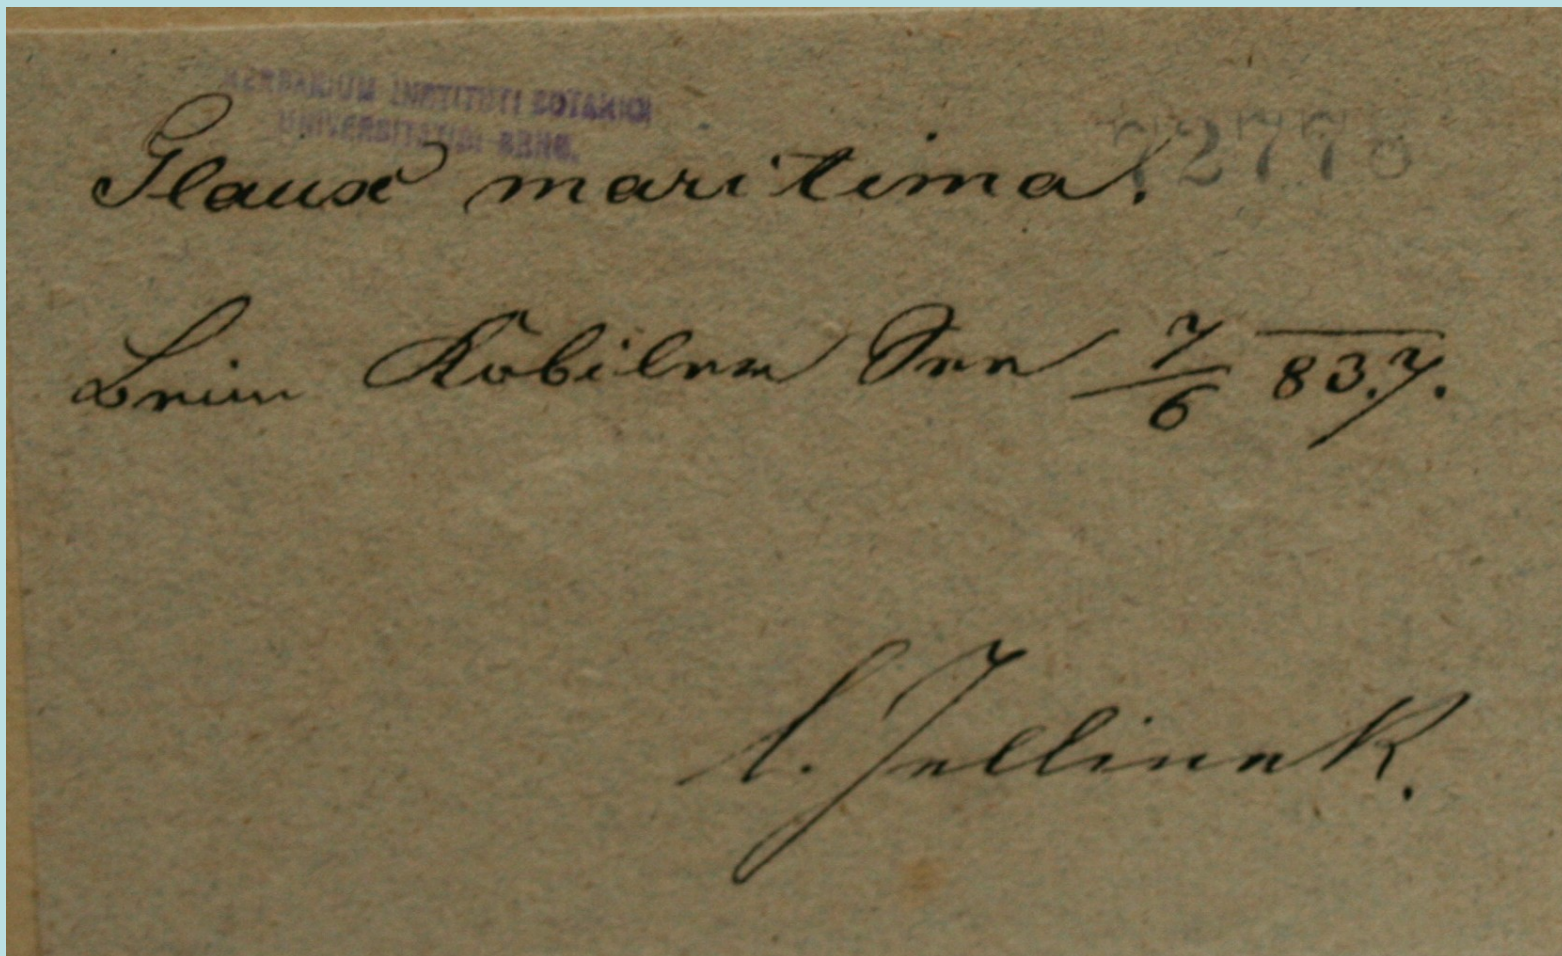 HERBARIUM INSTITUTI BOTANICI
UNIVERSITATIS BRNO.
72778
Glaux maritima.
Beim Kobiler See 7/6 83. J.
J. Jellinek.